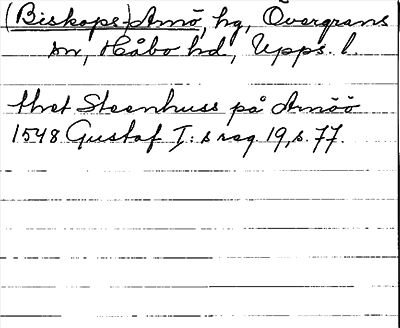 (Biskops-)Arnö, hg, Övergrans
sn, Håbo hd, Upps. l.
thet Steenhuss på Arnöö
1548 Gustaf I:s reg 19, s. 77.